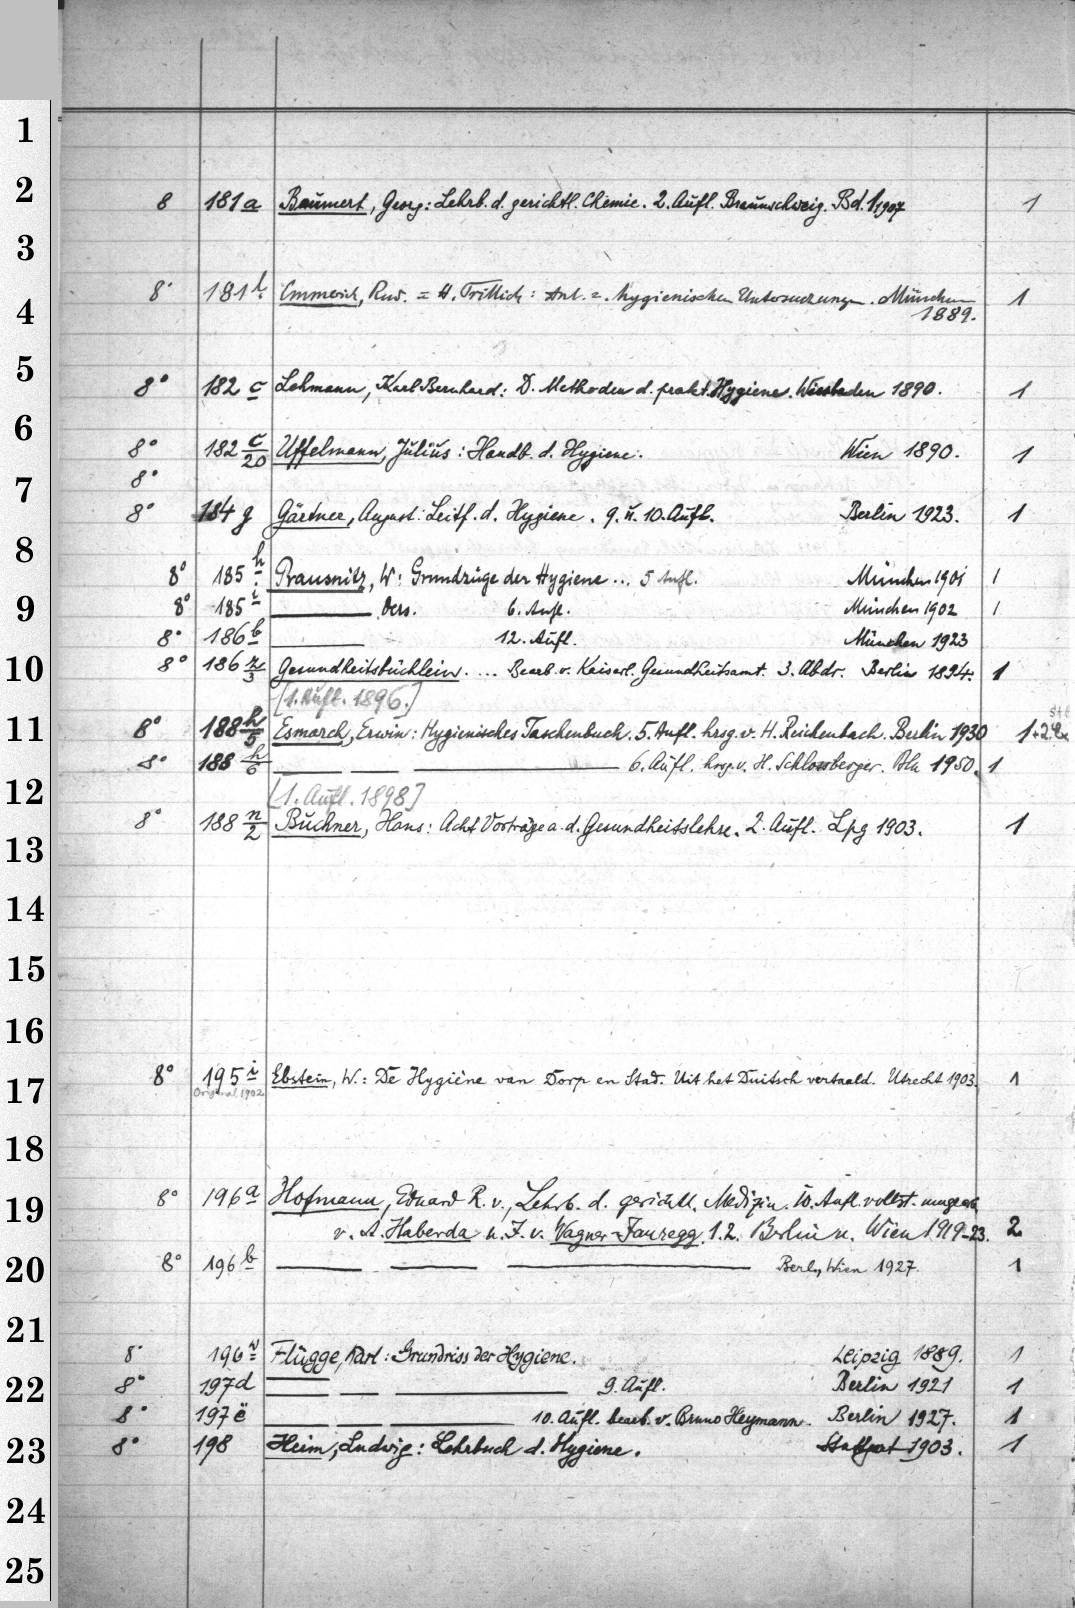 1
2
8 181a Baumert, Georg: Lehrb. d. gerichtl. Chemie. 2. Aufl. Braunschweig. Bd. 1 1907 1
3
8° 181 Emmerich, Rud. = H. Trillich: Anl. z. hygienischen Untersuchungen. München 1
4
1889.
5
8° 182 c Lehmann, Karl Bernhard: D. Methoden d. prakt. Hygiene. Wiesbaden 1890. 1
6
8° 182 c/20 Uffelmann, Julius: Handb. d. Hygiene. Wien 1890. 1
8°
7
8° 184 g Gärtner, August: Leitf. d. Hygiene. 9. u. 10. Aufl. Berlin 1923. 1
8
8° 185 h Prausnitz, W: Grundzüge der Hygiene... 5 Aufl. München 1901 1
9
8° 185 i ders. 6. Aufl. München 1902 1
8° 186 b 12. Aufl. München 1923
10
8° 186 n/3 Gesundheitsbüchlein. ... Bearb. v. Kaiserl. Gesundheitsamt. 3. Abdr. Berlin 1894. 1
[1. Aufl. 1896.]
11
8° 188 h/5 Esmarch, Erwin: Hygienisches Taschenbuch. 5. Aufl. hrsg. v. H. Reichenbach. Berlin 1930 1
8° 188 h/6 6. Aufl. hrsg. v. H. Schlossberger. Bln 1950. 1
12
[1. Aufl. 1898]
8° 188 n/2 Buchner, Hans: Acht Vorträge a. d. Gesundheitslehre. 2. Aufl. Lpg 1903. 1
13
14
15
16
8° 195 i Ebstein, W.: De Hygiène van Dorp en Stad. Uit het Duitsch vertaald. Utrecht 1903. 1
17
Original 1902
18
8° 196 a Hofmann, Eduard R. v., Lehrb. d. gerichtl. Medizin. 10. Aufl. vollst. umgearb
19
v. A. Haberda u. J. v. Wagner-Jauregg. 1.2. Berlin u. Wien 1919-23. 2
20
8° 196 b Berl., Wien 1927. 1
21
8° 196 Flügge, Karl: Grundriss der Hygiene. Leipzig 1889. 1
22
8° 197 d 9. Aufl. Berlin 1921 1
8° 197 e 10. Aufl. bearb. v. Bruno Heymann. Berlin 1927. 1
23
8° 198 Heim, Ludwig: Lehrbuch d. Hygiene. Stuttgart 1903. 1
24
25